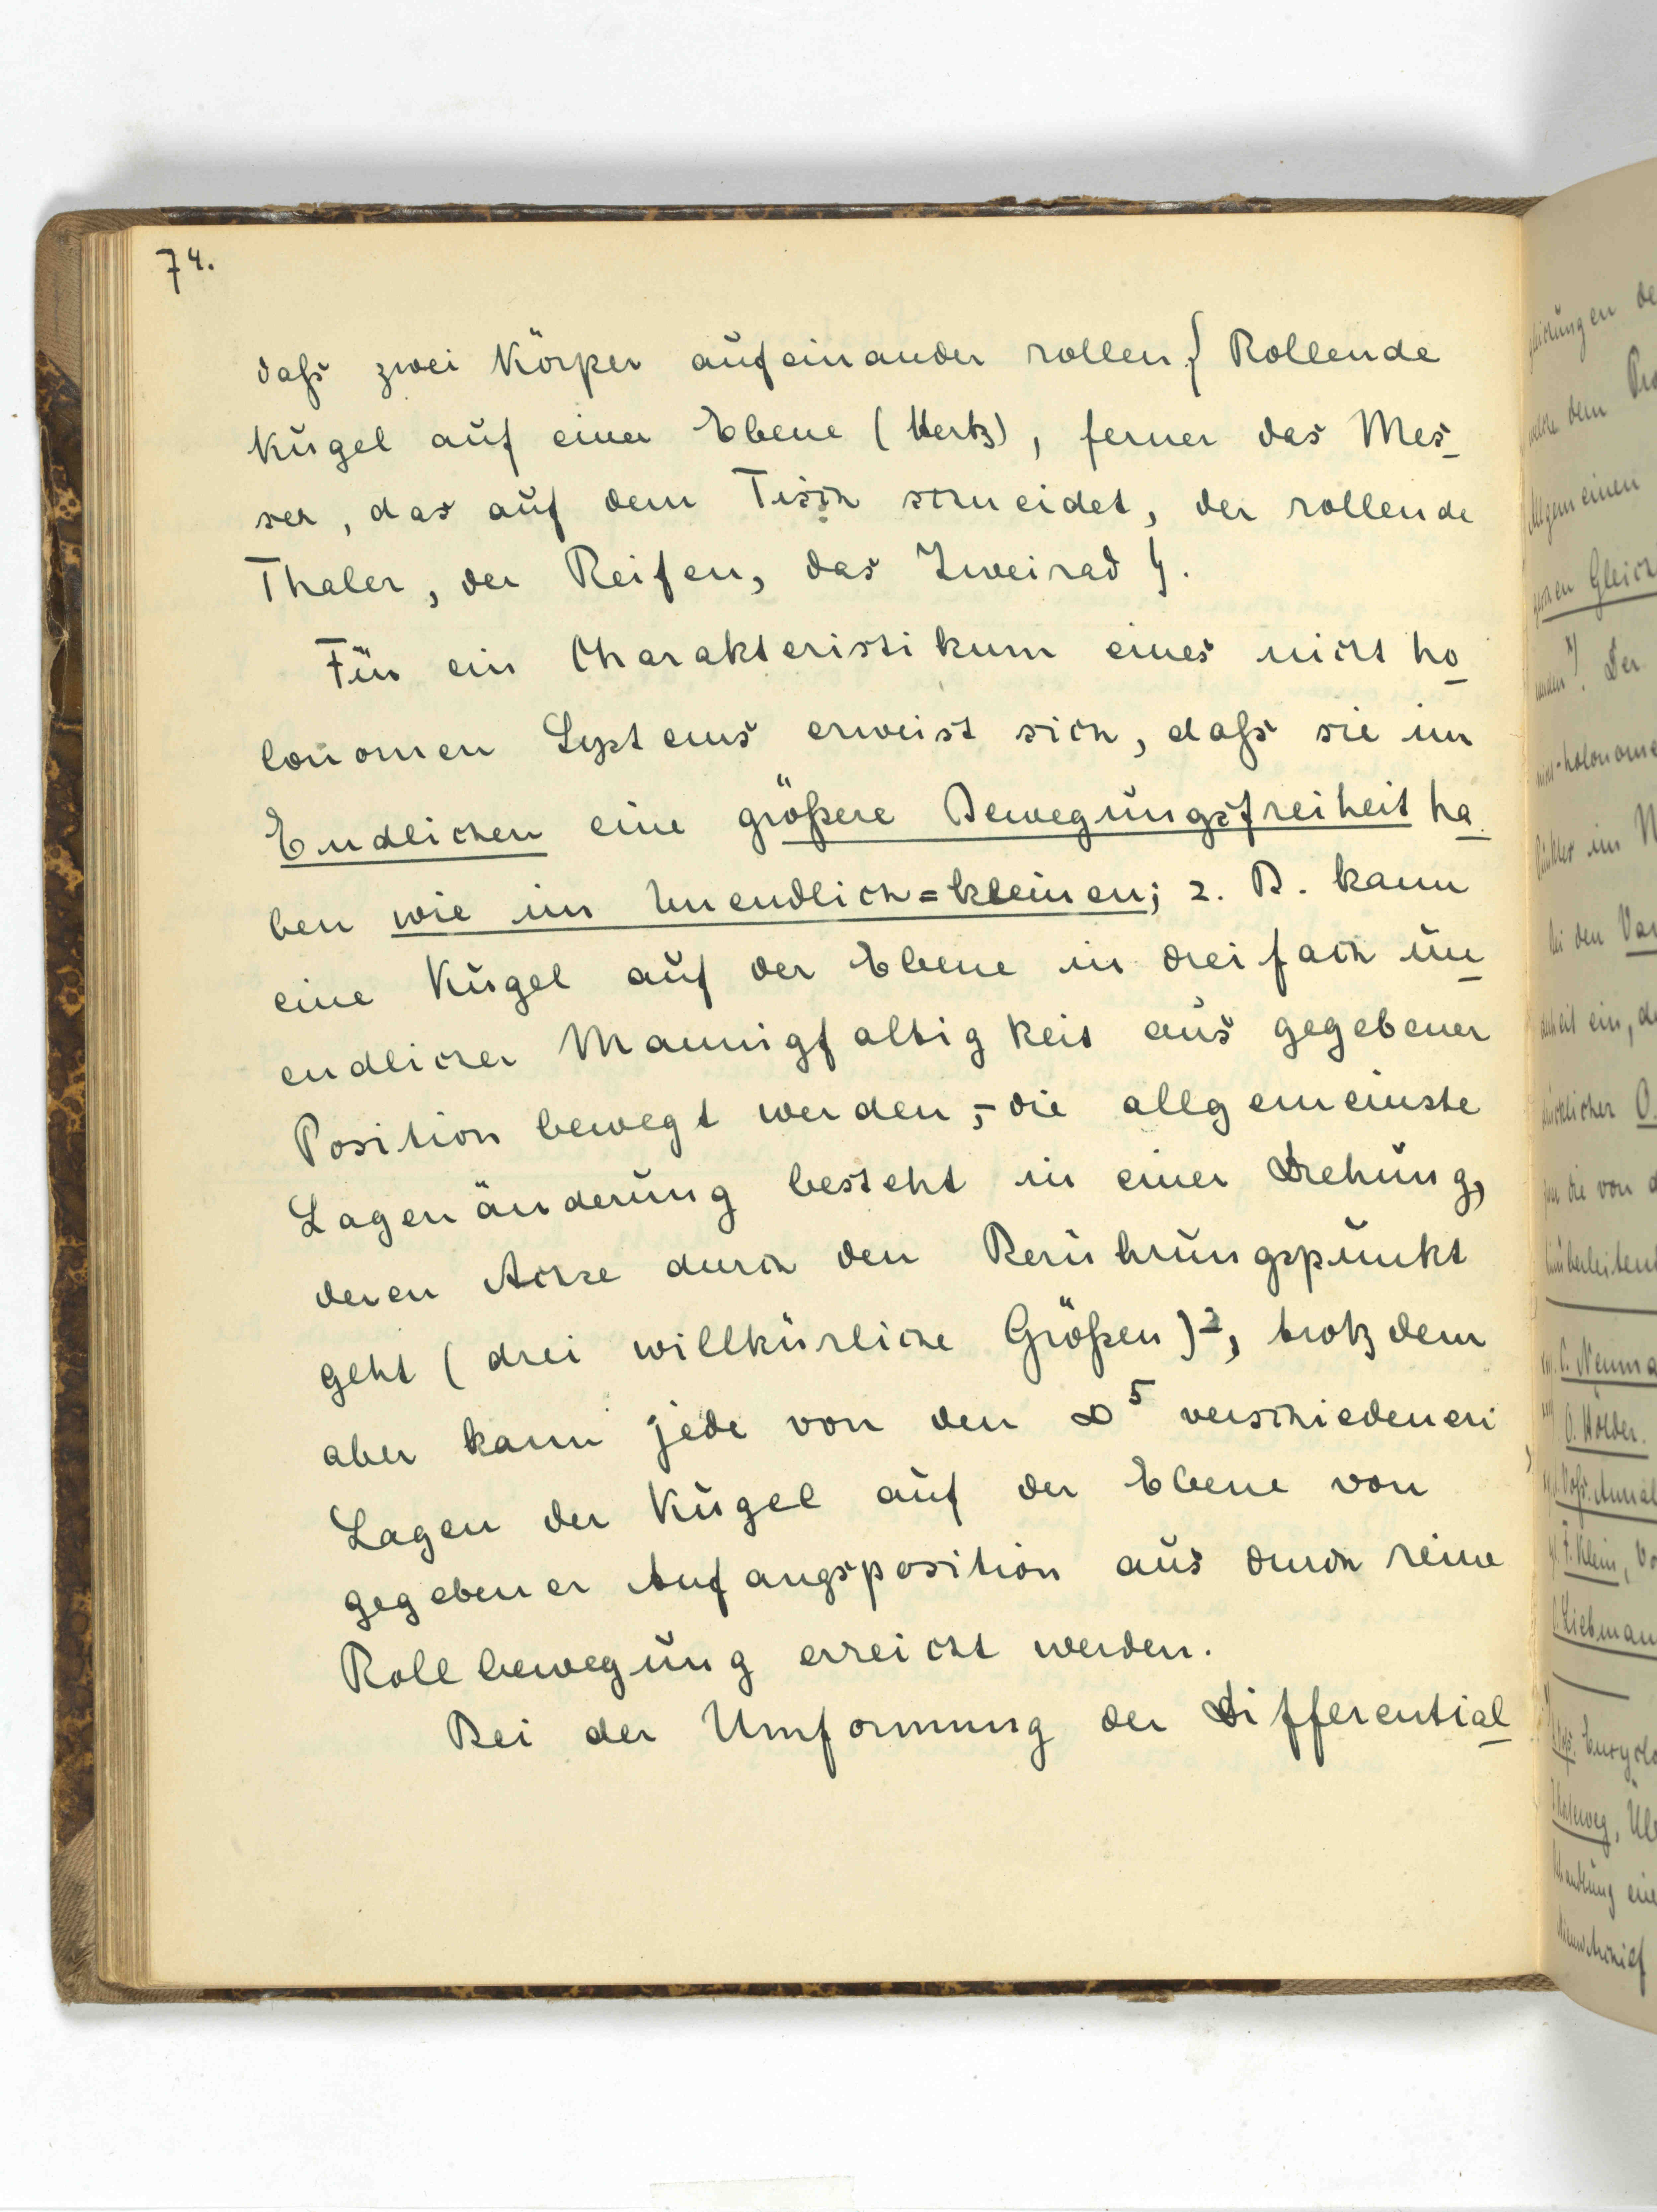 74.
daſs zwei Körper aufeinander rollen { Rollende
Kugel auf einer Ebene (Hertz), ferner das Mes-
ser, das auf dem Tisch schneidet, der rollende
Thaler, der Reifen, das Zweirad }.
Für ein Charakteristikum eines nicht ho-
lonomen Systems erweist sich, daſs sie im
Endlichen eine größere Bewegungsfreiheit ha-
ben wie im Unendlich=kleinen; z. B. kann
eine Kugel auf der Ebene in dreifach un-
endlicher Mannigfaltigkeit aus gegebener
Position bewegt werden, - die allgemeinste
Lagenänderung besteht in einer Drehung,
deren Achse durch den Berührungspunkt
geht (drei willkürliche Größen), trotzdem
aber kann jede von den ∞⁵ verschiedenen
Lagen der Kugel auf der Ebene von
gegebener Anfangsposition aus durch reine
Rollbewegung erreicht werden.
Bei der Umformung der Differential-
dem
allgemeinen
Der
holonome
im
bei den
ein,
die von
C. Neuma
O. Hölder.
F. Klein,
Liebman